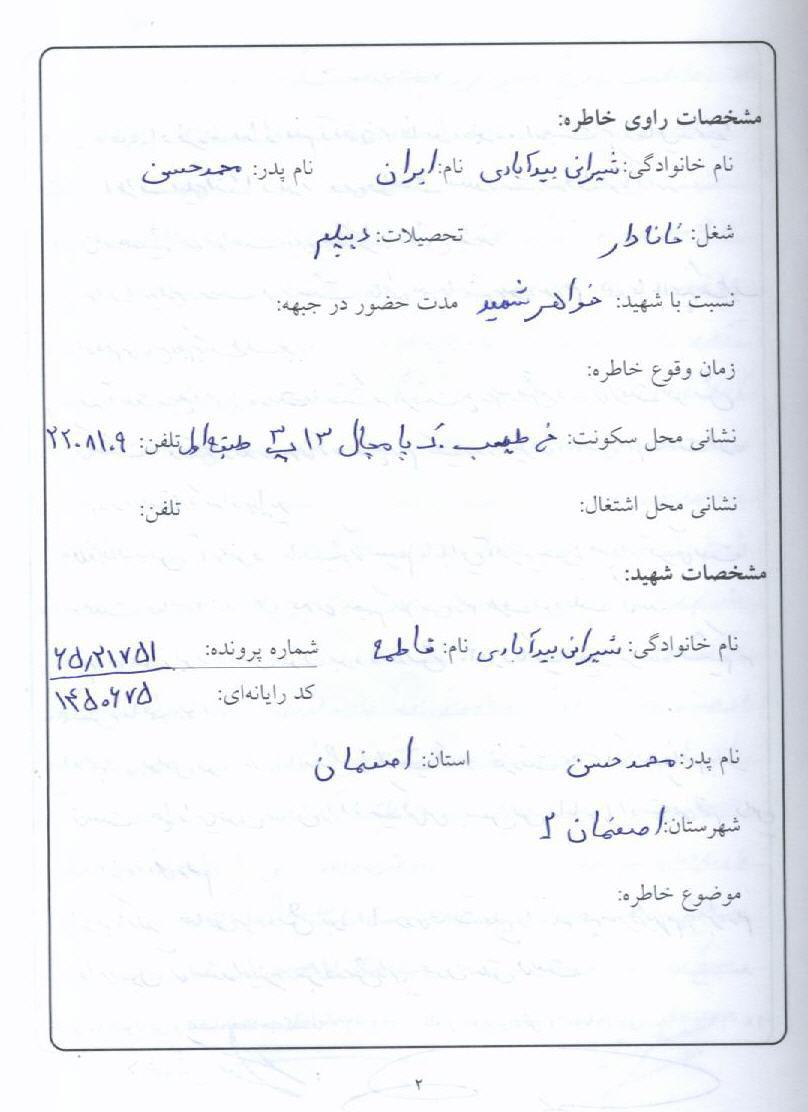 مشخصات راوی خاطره:
نام خانوادگی: شیرانی بیدآبادی نام: ایران نام پدر: محمدحسن
شغل: خانه‌دار تحصیلات: دیپلم
نسبت با شهید: خواهر شهید مدت حضور در جبهه:
زمان وقوع خاطره:
نشانی محل سکونت: خ طیب ۱۳ پ ۳ طبقه اول تلفن: ۲۲۰۸۱۰۹
نشانی محل اشتغال: تلفن:
مشخصات شهید:
نام خانوادگی: شیرانی بیدآبادی نام: فاطمه شماره پرونده: ۶۵٫۲۱۷۵۱
کد رایانه‌ای: ۱۴۵۰۶۷۵
نام پدر: محمدحسن استان: اصفهان
شهرستان: اصفهان ۲
موضوع خاطره:
۲